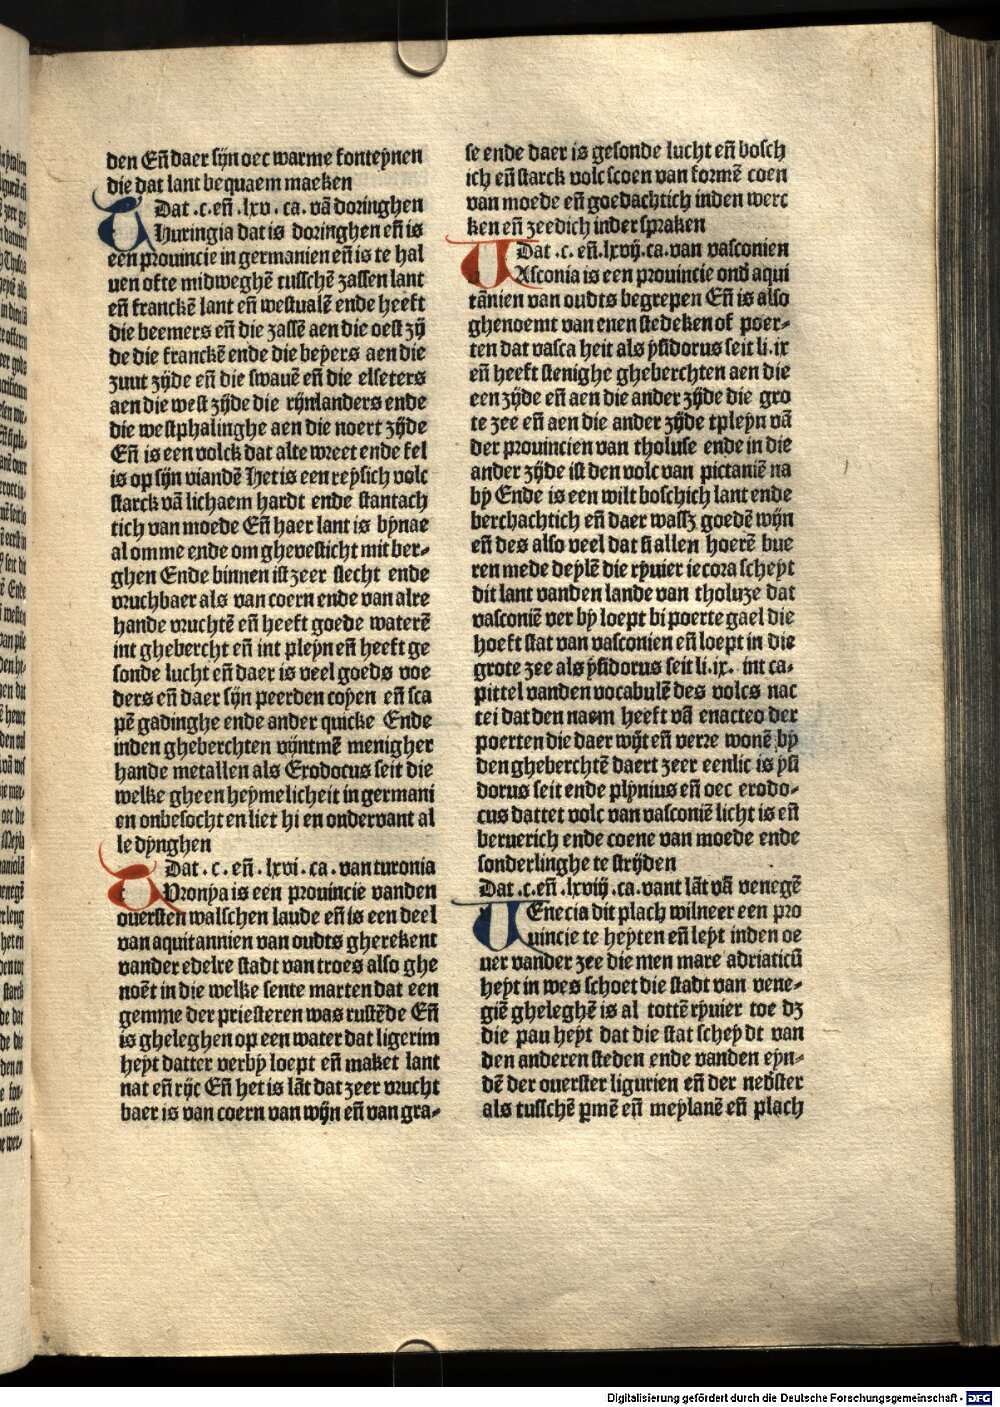 den Eñ daer sijn oec warme fonteynen
die dat lant bequaem maeken
Dat .c. eñ .lxv. ca. vã doringhen
Thuringia dat is doringhen eñ is
een prouincie in germanien eñ is te hal
uen ofte midweghẽ tusschẽ zassen lant
eñ franckẽ lant eñ westualẽ ende heeft
die beemers eñ die zassẽ aen die oest zij
de die franckẽ ende die beyers aen die
zuut zijde eñ die swauẽ eñ die elseters
aen die west zijde die rijnlanders ende
die westphalinghe aen die noert zijde
Eñ is een volck dat alte wreet ende fel
is op sijn viandẽ Het is een reysich volc
starck vã lichaem hardt ende stantach
tich van moede Eñ haer lant is bynae
al omme ende om ghevesticht mit ber-
ghen Ende binnen ist zeer slecht ende
vruchbaer als van coern ende van alre
hande vruchtẽ eñ heeft goede waterẽ
int ghebercht eñ int pleyn eñ heeft ge
sonde lucht eñ daer is veel goeds voe
ders eñ daer sijn peerden coyen eñ sca
pẽ gadinghe ende ander quicke Ende
inden gheberchten vijntmẽ menigher
hande metallen als Erodocus seit die
welke gheen heymelicheit in germani
en onbesocht en liet hi en ondervant al
le dynghen
Dat .c. eñ .lxvi. ca. van turonia
Turonya is een prouincie vanden
ouersten walschen laude eñ is een deel
van aquitannien van oudts gherekent
vander edelre stadt van troes also ghe
noẽt in die welke sente marten dat een
gemme der priesteren was rustẽde Eñ
is gheleghen op een water dat ligerim
heyt datter verby loept eñ maket lant
nat eñ rijc Eñ het is lãt dat zeer vrucht
baer is van coern van wijn eñ van gra-
se ende daer is gesonde lucht eñ bosch
ich eñ starck volc scoen van formẽ coen
van moede eñ goedachtich inden werc
ken eñ zeedich inder spraken
Dat .c. eñ .lxvij. ca. van vasconien
Vasconia is een prouincie ond' aqui
tãnien van oudts begrepen Eñ is also
ghenoemt van enen stedeken of poer-
ten dat vasca heit als ysidorus seit li. ix
eñ heeft stenighe gheberchten aen die
een zijde eñ aen die ander zijde die gro
te zee eñ aen die ander zijde tpleyn vã
der prouincien van tholuse ende in die
ander zijde ist den volc van pictaniẽ na
by Ende is een wilt boschich lant ende
berchachtich eñ daer wassz goedẽ wijn
eñ des also veel dat si allen hoerẽ bue
ren mede deylẽ die ryuier iecora scheyt
dit lant vanden lande van tholuze dat
vasconiẽ ver by loept bi poerte gael die
hoeft stat van vasconien eñ loept in die
grote zee als ysidorus seit li. ix. int ca-
pittel vanden vocabulẽ des volcs nac
tei dat den naem heeft vã enacteo der
poerten die daer wijt eñ verre wonẽ by
den gheberchtẽ daert zeer eenlic is ysi
dorus seit ende plynius eñ oec erodo-
cus dattet volc van vasconiẽ licht is eñ
beruerich ende coene van moede ende
sonderlinghe te strijden
Dat .c. eñ .lxviij. ca. vant lãt vã venegẽ
Venecia dit plach wilneer een pro
uincie te heyten eñ leyt inden oe
uer vander zee die men mare adriaticũ
heyt in wes schoet die stadt van vene-
giẽ gheleghẽ is al tottẽ ryuier toe dz
die pau heyt dat die stat scheydt van
den anderen steden ende vanden eyn-
dẽ der ouerster ligurien eñ der ned'ster
als tusschẽ pmẽ eñ meylanẽ eñ plach
Digitalisierung gefördert durch die Deutsche Forschungsgemeinschaft - DFG